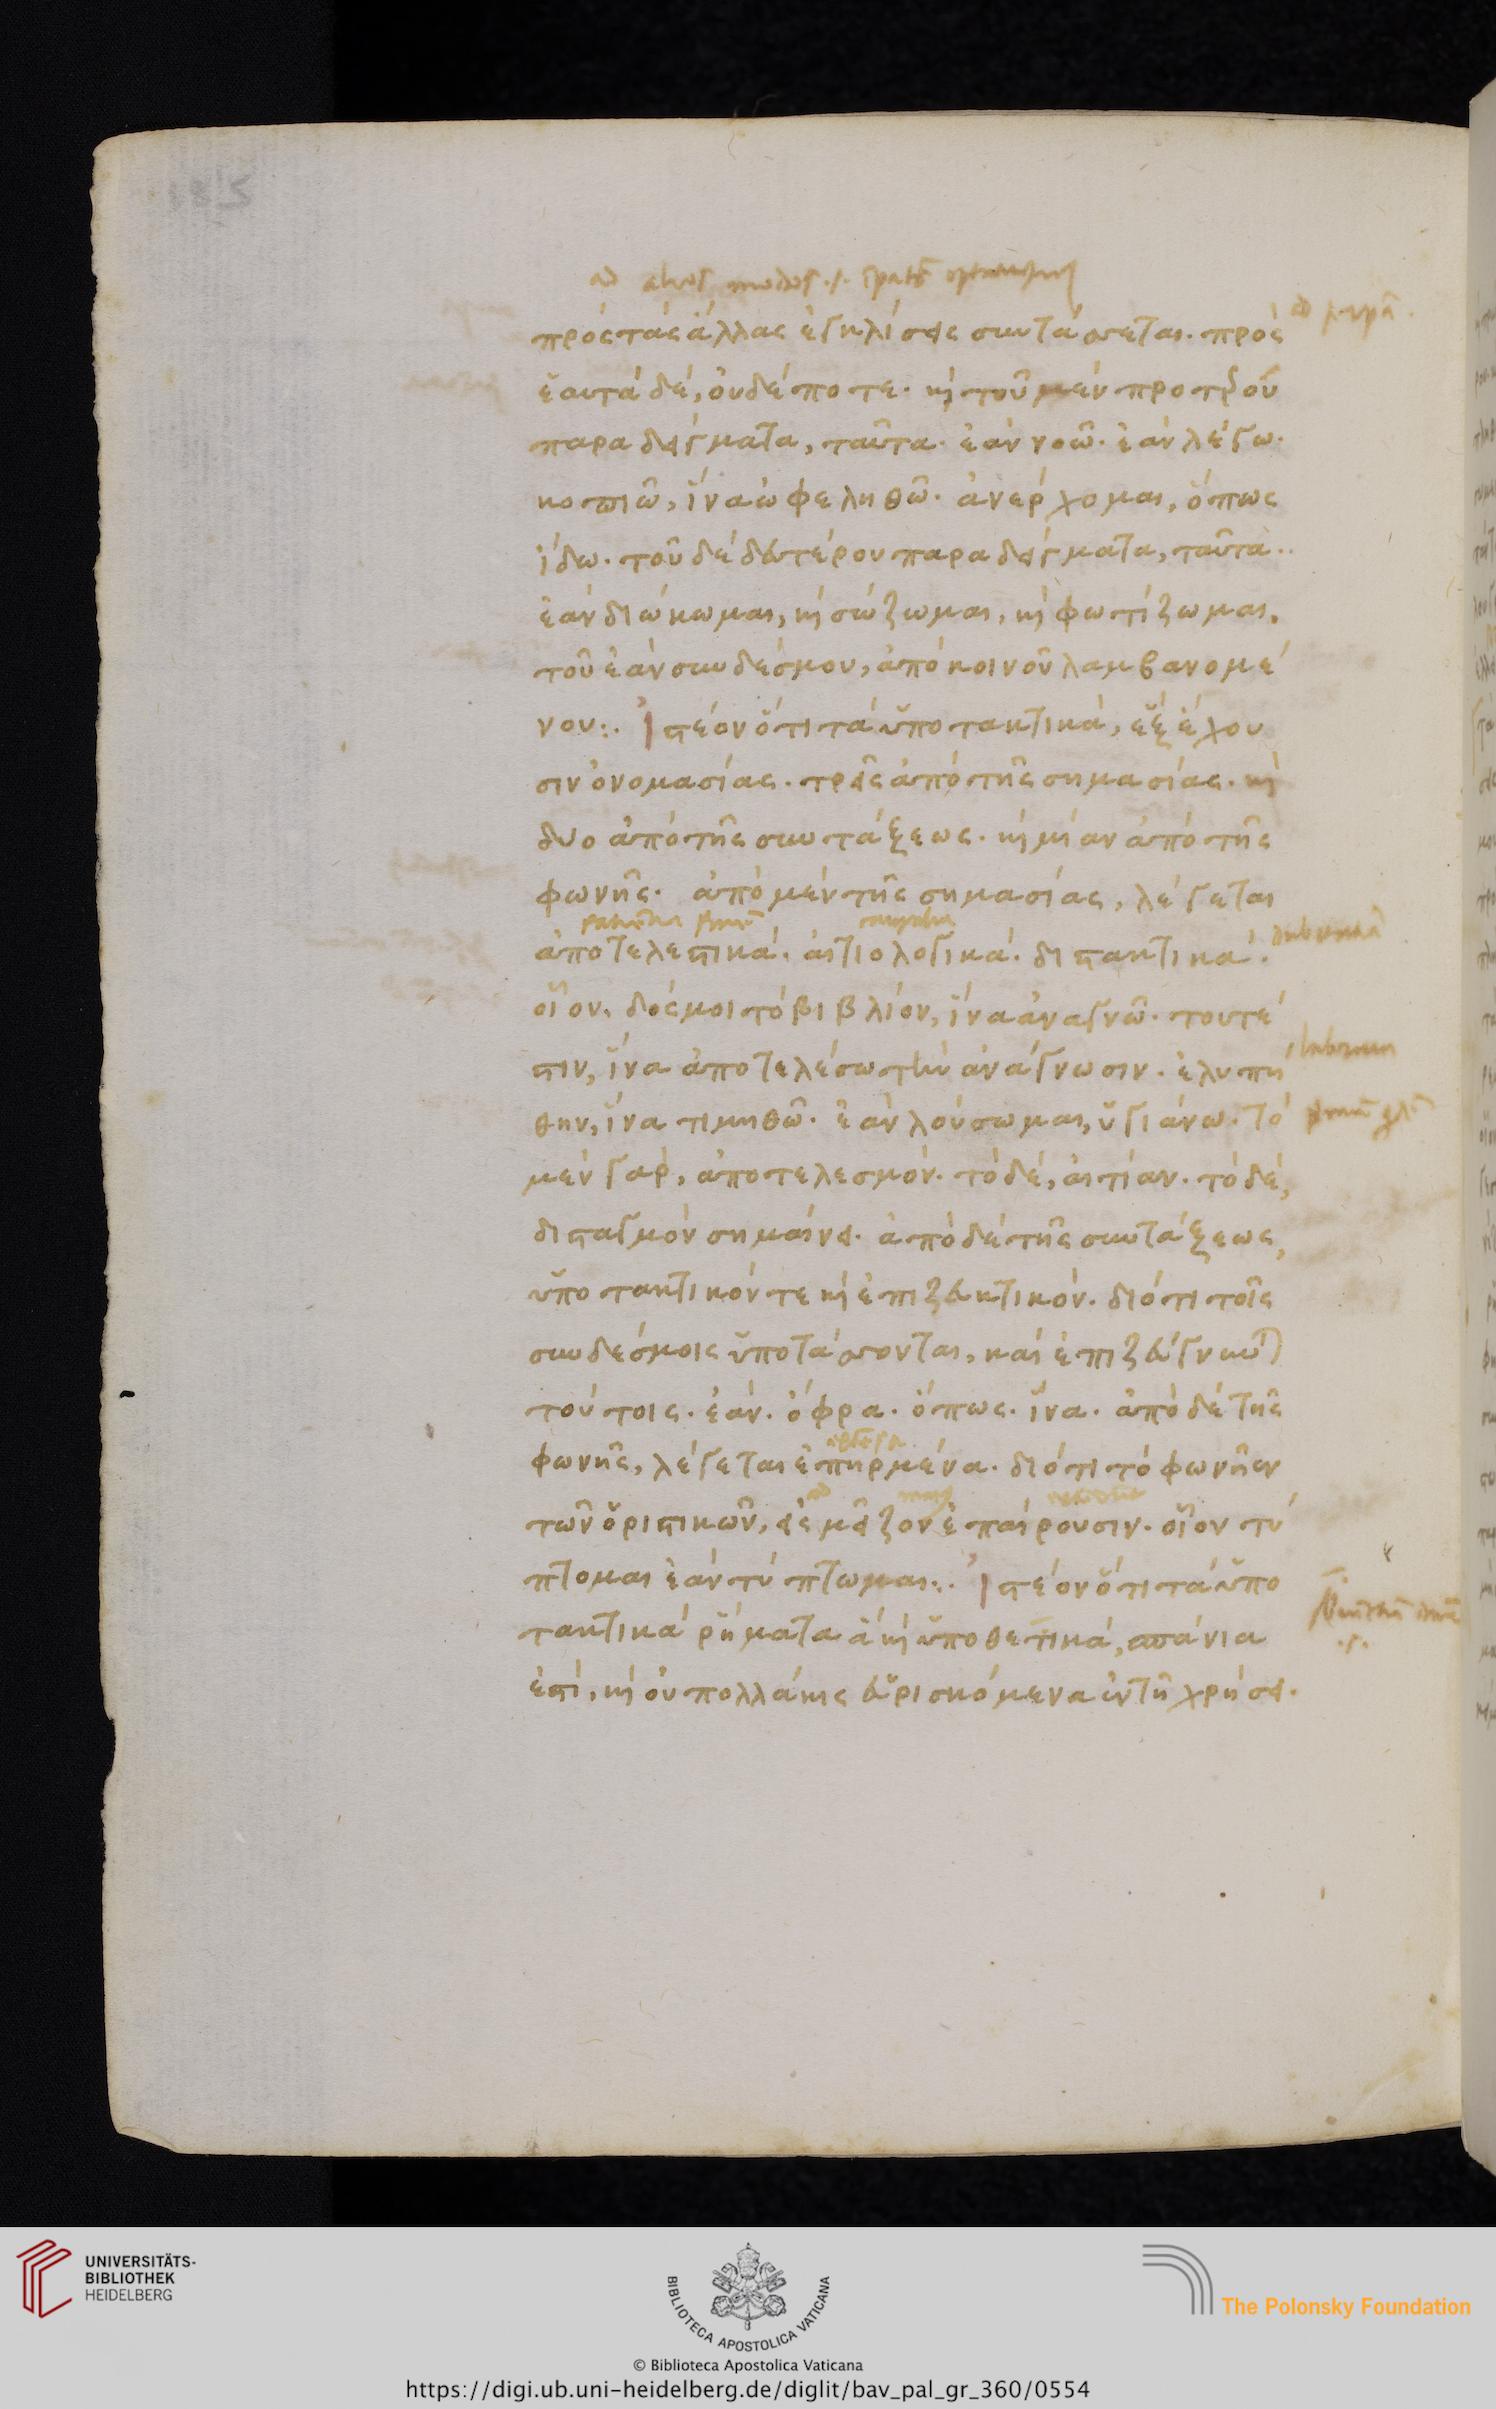 ad alios modos
πρὸς τὰς ἄλλας ἐγκλίσεις συντάσσεται. πρὸς
ἑαυτὰ δὲ, οὐδέποτε. καὶ τοῦ μὲν προτέρου
παραδείγματα, ταῦτα. ἐὰν νοῶ. ἐὰν λέγω.
κοπιῶ, ἵνα ὠφεληθῶ. ἀνέρχομαι, ὅπως
ἴδω. τοῦ δὲ δευτέρου παραδείγματα, ταῦτα.
ἐὰν διώκωμαι, καὶ σώζωμαι, καὶ φωτίζωμαι,
τοῦ ἐὰν συνδέσμου, ἀπὸ κοινοῦ λαμβανομέ
νου:. Ἰστέον ὅτι τὰ ὑποτακτικὰ, ἓξ ἔχου
σιν ὀνομασίας. τρεῖς ἀπὸ τῆς σημασίας. καὶ
δυο ἀπὸ τῆς συντάξεως. καὶ μίαν ἀπὸ τῆς
φωνῆς. ἀπὸ μὲν τῆς σημασίας, λέγεται
ἀποτελεστικά. αἰτιολογικά. διστακτικά.
οἷον, δός μοι τὸ βιβλίον, ἵνα ἀναγνῶ. τουτέ
στιν, ἵνα ἀποτελέσω τὴν ἀνάγνωσιν. ἐλυπή
θην, ἵνα τιμηθῶ. ἐὰν λούσωμαι, ὑγιάνω. τὸ
μὲν γὰρ, ἀποτελεσμόν. τὸ δὲ, αἰτίαν. τὸ δὲ,
δισταγμὸν σημαίνει. ἀπὸ δὲ τῆς συντάξεως,
ὑποτακτικόν τε καὶ ἐπιζευκτικόν. διότι τοῖς
συνδέσμοις ὑποτάσσονται, καὶ ἐπιζεύγνυνται
τούτοις. ἐάν. ὄφρα. ὅπως. ἵνα. ἀπὸ δὲ τῆς
φωνῆς, λέγεται ἐπηρμένα. διότι τὸ φωνῆεν
τῶν ὁριστικῶν, εἰς μεῖζον ἐπαίρουσιν. οἷον τύ
πτομαι ἐὰν τύπτωμαι:. Ἰστέον ὅτι τὰ ὑπο
τακτικὰ ῥήματα ἃ καὶ ὑποθετικά, σπάνιά
ἐστι, καὶ οὐ πολλάκις εὑρισκόμενα ἐν τῇ χρήσει.
UNIVERSITÄTS-
BIBLIOTHEK
HEIDELBERG
BIBLIOTECA APOSTOLICA VATICANA
The Polonsky Foundation
© Biblioteca Apostolica Vaticana
https://digi.ub.uni-heidelberg.de/diglit/bav_pal_gr_360/0554